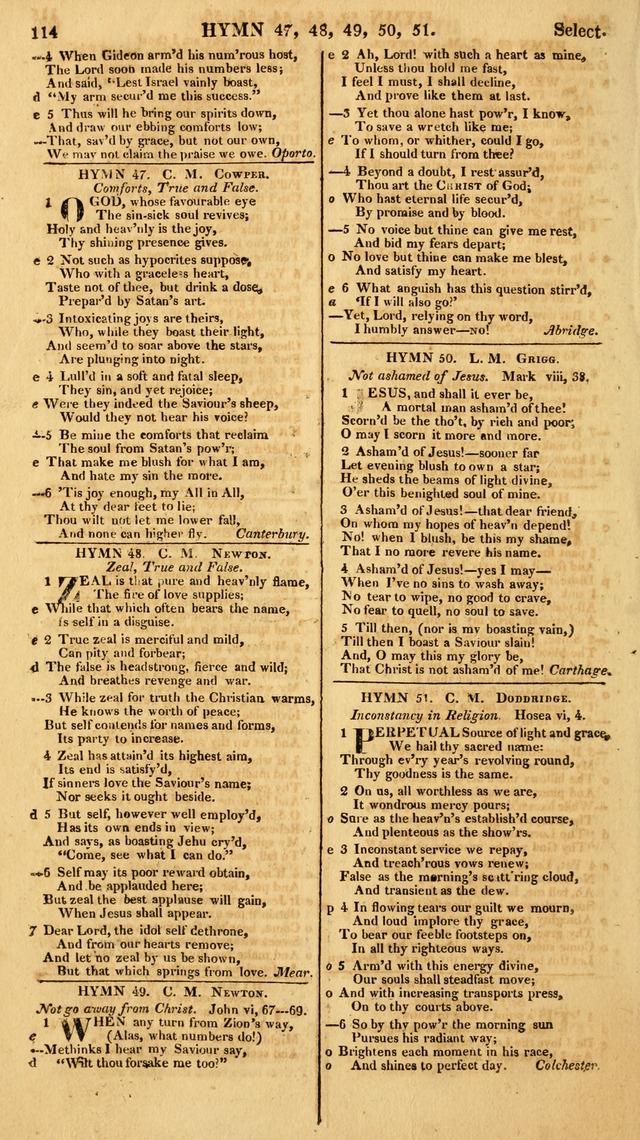 114 HYMN 47, 48, 49, 50, 51. Select.
--4 When Gideon arm'd his num'rous host,
The Lord soon made his numbers less;
And said, "Lest Israel vainly boast,
d "My arm secur'd me this success."
e 5 Thus will he bring our spirits down,
And draw our ebbing comforts low;
--That, sav'd by grace, but not our own,
We may not claim the praise we owe. Oporto.
HYMN 47. C. M. COWPER.
Comforts, True and False.
1 O GOD, whose favourable eye
The sin-sick soul revives;
Holy and heav'nly is the joy,
Thy shining presence gives.
e 2 Not such as hypocrites suppose,
Who with a graceless heart,
Taste not of thee, but drink a dose,
Prepar'd by Satan's art.
--3 Intoxicating joys are theirs,
Who, while they boast their light,
And seem'd to soar above the stars,
Are plunging into night.
e 4 Lull'd in a soft and fatal sleep,
They sin, and yet rejoice;
e Were they indeed the Saviour's sheep,
Would they not hear his voice?
--5 Be mine the comforts that reclaim
The soul from Satan's pow'r;
e That make me blush for what I am,
And hate my sin the more.
--6 'Tis joy enough, my All in All,
At thy dear feet to lie;
Thou wilt not let me lower fall,
And none can higher fly. Canterbury.
HYMN 48. C. M. NEWTON.
Zeal, True and False.
1 ZEAL is that pure and heav'nly flame,
The fire of love supplies;
e While that which often bears the name,
Is self in a disguise.
e 2 True zeal is merciful and mild,
Can pity and forbear;
d The false is headstrong, fierce and wild;
And breathes revenge and war.
--3 While zeal for truth the Christian warms,
He knows the worth of peace;
But self contends for names and forms,
Its party to increase.
4 Zeal has attain'd its highest aim,
Its end is satisfy'd,
If sinners love the Saviour's name;
Nor seeks it ought beside.
d 5 But self, however well employ'd,
Has its own ends in view;
And says, as boasting Jehu cry'd,
"Come, see what I can do."
--6 Self may its poor reward obtain,
And be applauded here;
But zeal the best applause will gain,
When Jesus shall appear.
7 Dear Lord, the idol self dethrone,
And from our hearts remove;
And let no zeal by us be shown,
But that which springs from love. Mear.
HYMN 49. C. M. NEWTON.
Not go away from Christ. John vi, 67--69.
1 WHEN any turn from Zion's way,
e (Alas, what numbers do!)
--Methinks I hear my Saviour say,
d "Wilt thou forsake me too?"
e 2 Ah, Lord! with such a heart as mine,
Unless thou hold me fast,
I feel I must, I shall decline,
And prove like them at last.
--3 Yet thou alone hast pow'r, I know,
To save a wretch like me;
e To whom, or whither, could I go,
If I should turn from thee?
--4 Beyond a doubt, I rest assur'd,
Thou art the CHRIST of God;
o Who hast eternal life secur'd,
By promise and by blood.
--5 No voice but thine can give me rest,
And bid my fears depart;
o No love but thine can make me blest,
And satisfy my heart.
e 6 What anguish has this question stirr'd,
a 'If I will also go?'
--Yet, Lord, relying on thy word,
I humbly answer--NO! Abridge.
HYMN 50. L. M. GRIGG.
Not ashamed of Jesus. Mark viii, 38.
1 JESUS, and shall it ever be,
A mortal man asham'd of thee!
Scorn'd be the tho't, by rich and poor;
O may I scorn it more and more.
2 Asham'd of Jesus!--sooner far
Let evening blush to own a star;
He sheds the beams of light divine,
O'er this benighted soul of mine.
3 Asham'd of Jesus!--that dear friend,
On whom my hopes of heav'n depend!
No! when I blush, be this my shame,
That I no more revere his name.
4 Asham'd of Jesus!--yes I may--
When I've no sins to wash away;
No tear to wipe, no good to crave,
No fear to quell, no soul to save.
5 Till then, (nor is my boasting vain,)
Till then I boast a Saviour slain!
And, O may this my glory be,
That Christ is not asham'd of me! Carthage.
HYMN 51. C. M. DODDRIDGE.
Inconstancy in Religion. Hosea vi, 4.
1 PERPETUAL Source of light and grace,
We hail thy sacred name:
Through ev'ry year's revolving round,
Thy goodness is the same.
2 On us, all worthless as we are,
It wondrous mercy pours;
o Sure as the heav'n's establish'd course,
And plenteous as the show'rs.
e 3 Inconstant service we repay,
And treach'rous vows renew;
False as the morning's scatt'ring cloud,
And transient as the dew.
p 4 In flowing tears our guilt we mourn,
And loud implore thy grace,
To bear our feeble footsteps on,
In all thy righteous ways.
o 5 Arm'd with this energy divine,
Our souls shall steadfast move;
o And with increasing transports press,
On to thy courts above.
--6 So by thy pow'r the morning sun
Pursues his radiant way;
o Brightens each moment in his race,
o And shines to perfect day. Colchester.